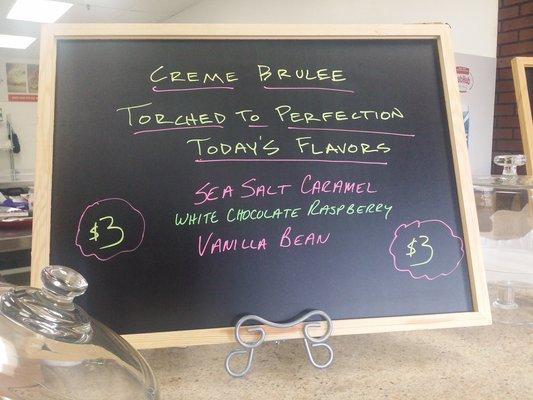 CREME BRULEE
TORCHED TO PERFECTION
TODAY'S FLAVORS
SEA SALT CARAMEL
WHITE CHOCOLATE RASPBERRY
VANILLA BEAN
$3
$3